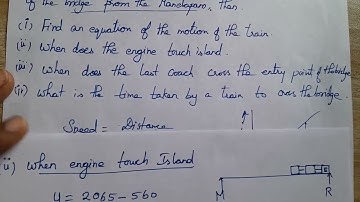 of the bridge from the Mandapam, then
(i) Find an equation of the motion of the train.
(ii) When does the engine touch island.
(iii) When does the last coach cross the entry point of the bridge
(iv) What is the time taken by a train to cross the bridge.
Speed = Distance
ii) When engine touch Island
y = 2065 - 560
M
R